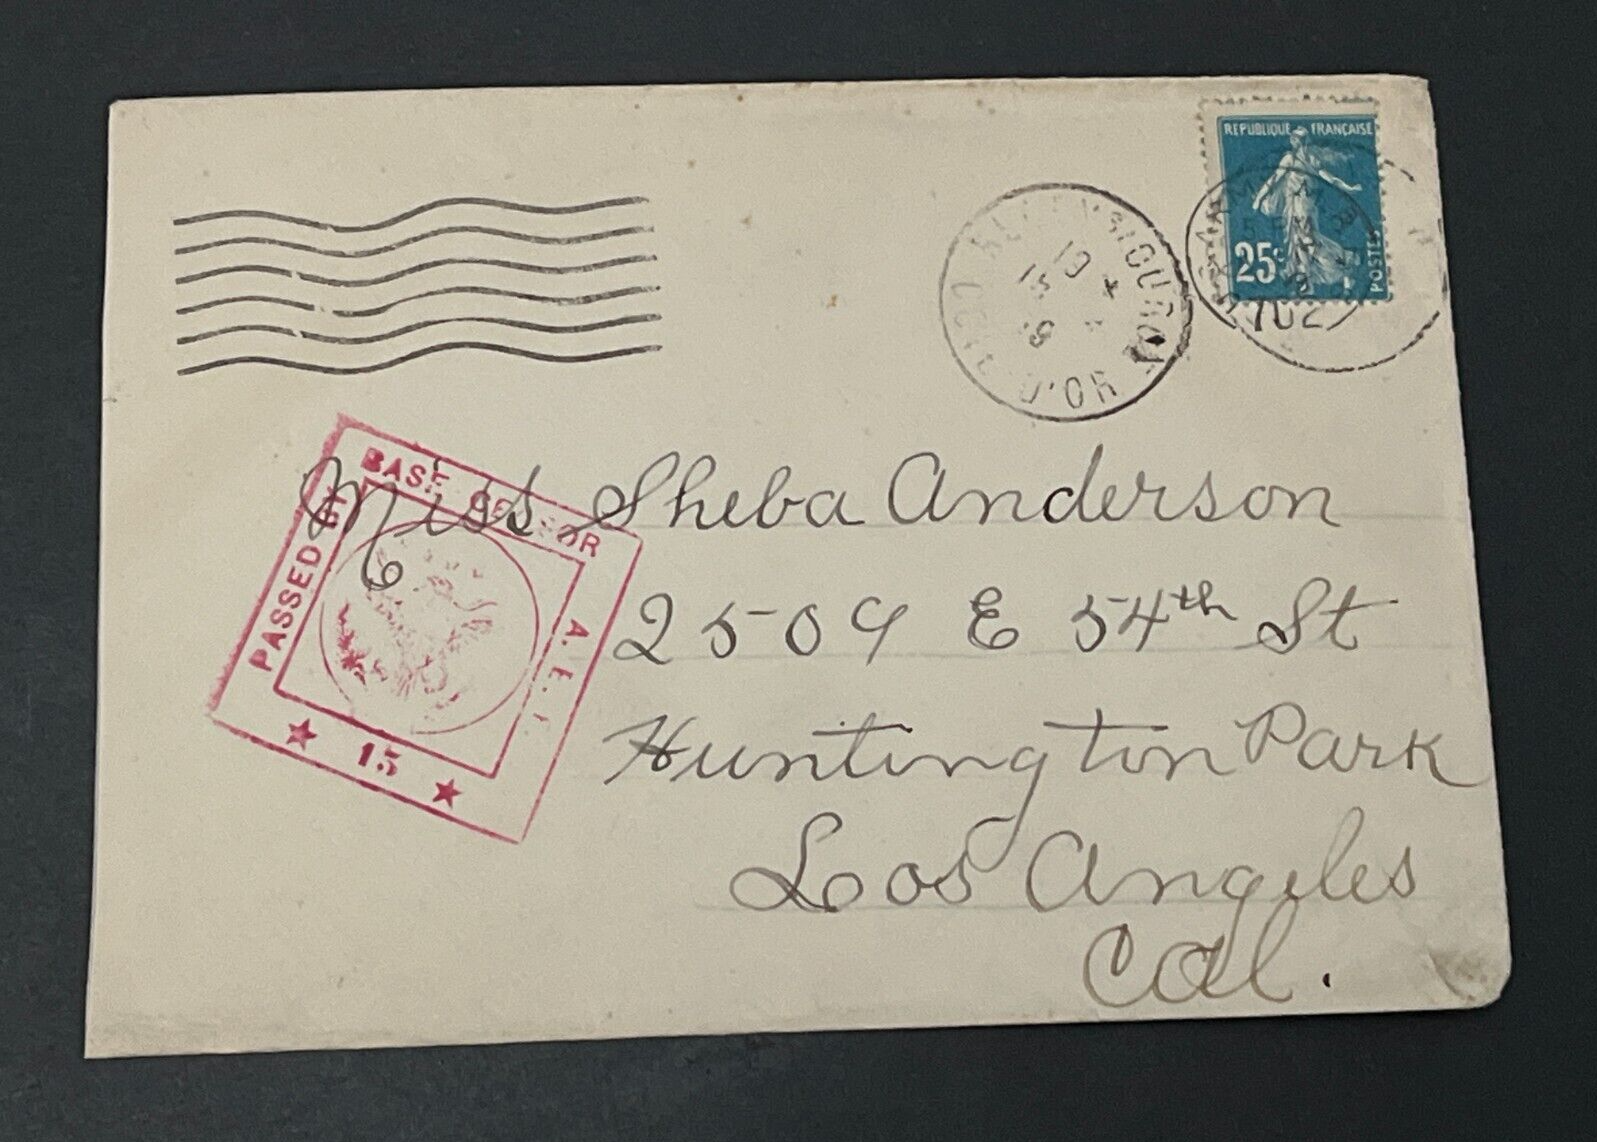 REPUBLIQUE FRANÇAISE
25c
POSTES
702
PASSED BY
BASE CENSOR
A. E. F
★ 15 ★
Miss Sheba Anderson
2509 E 54th St
Huntington Park
Los Angeles
Cal.